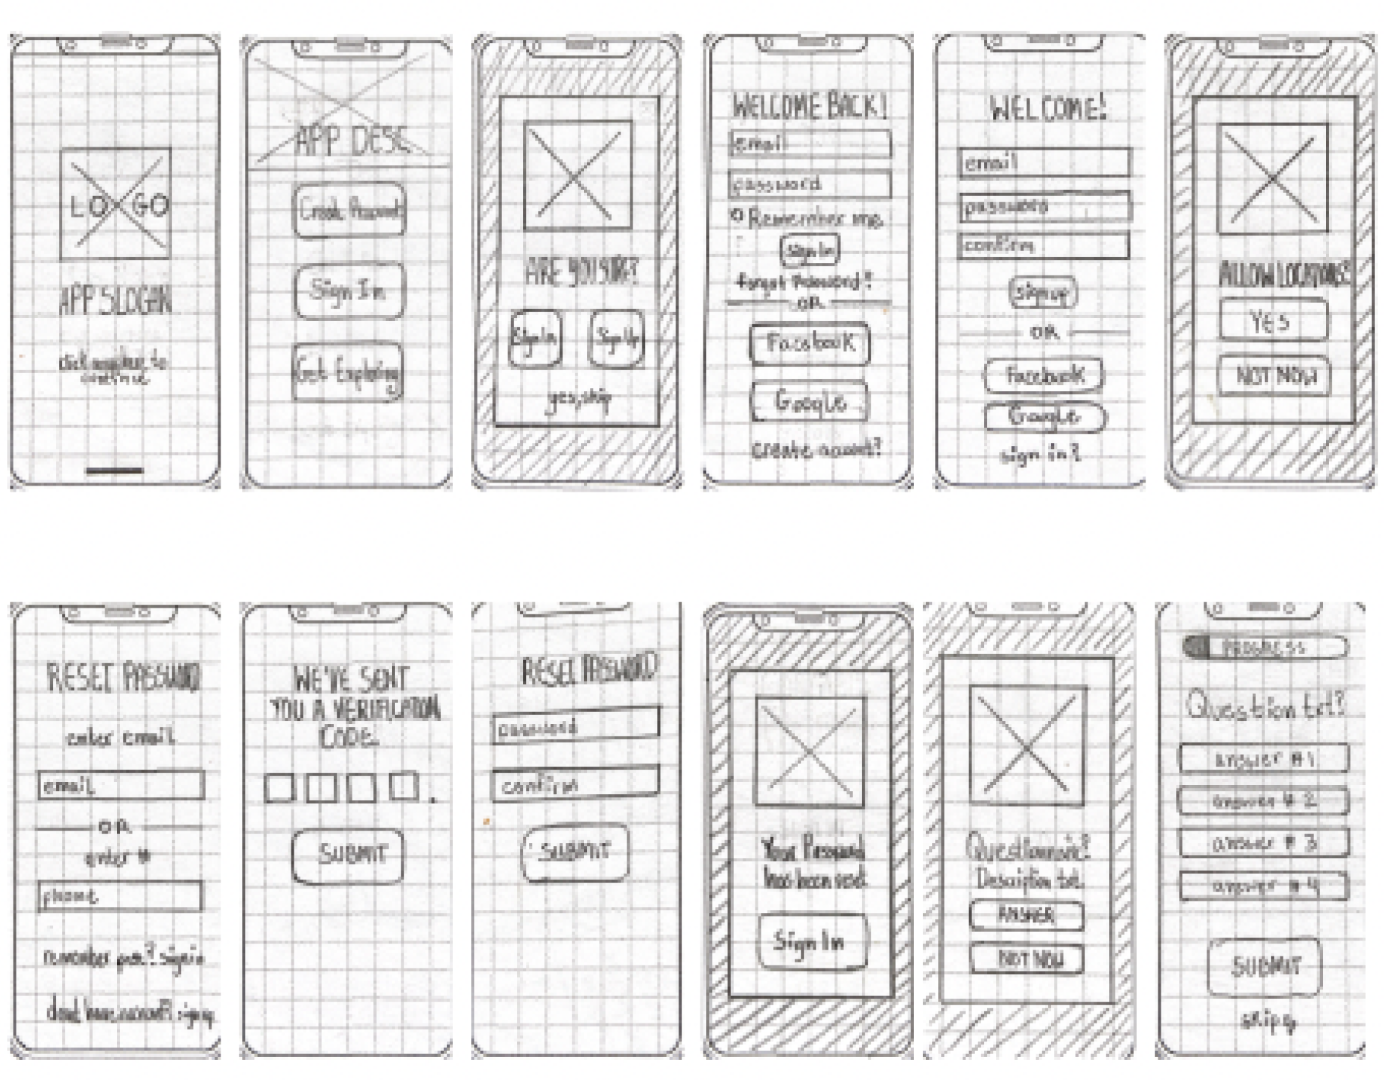 LOGO
APP SLOGAN
click anywhere to
continue
APP DESC
Create Account
Sign In
Get Exploring
ARE YOU SURE?
Sign In
Sign Up
yes, skip
WELCOME BACK!
email
password
Remember me
sign In
forgot Password?
OR
Facebook
Google
create acount?
WELCOME!
email
password
confirm
sign up
OR
Facebook
Google
sign in?
ALLOW LOCATIONS?
YES
NOT NOW
RESET PASSWORD
enter email
email
OR
enter #
phone
remember pass? sign in
dont have account? sign up
WE'VE SENT
YOU A VERIFICATION
CODE.
SUBMIT
RESET PASSWORD
password
confirm
SUBMIT
Your Password
has been reset
Sign In
Questionnaire?
Description txt.
ANSWER
NOT NOW
PROGRESS
Question txt?
answer #1
answer # 2
answer # 3
answer # 4
SUBMIT
skip q